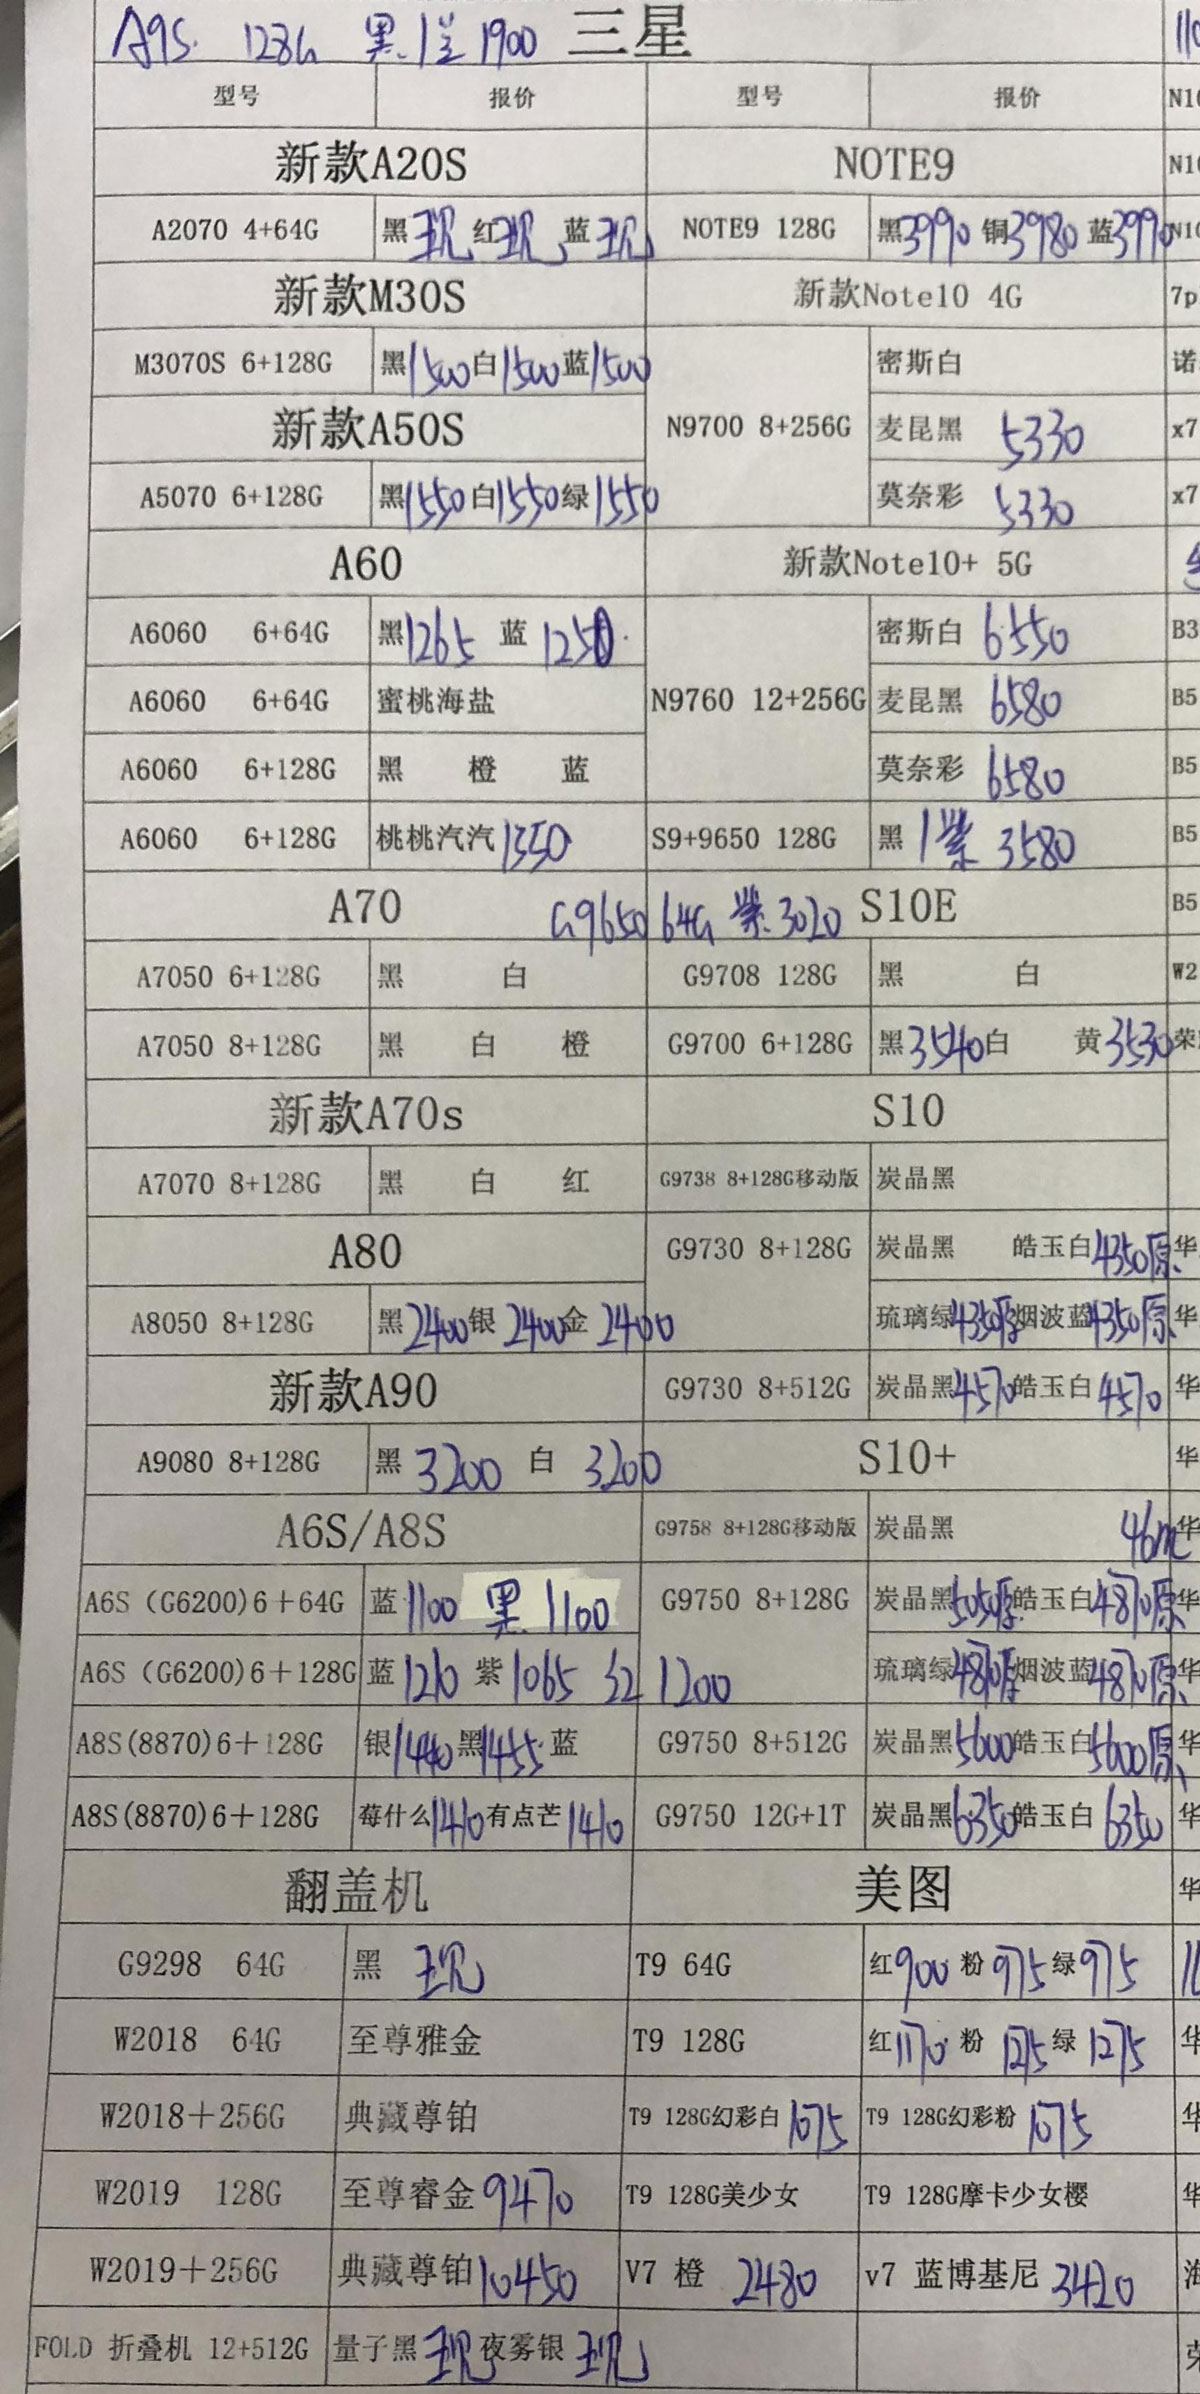 A9S. 128G 黑.1兰1900 三星
型号 报价 型号 报价
新款A20S NOTE9
A2070 4+64G 黑现 红现 蓝现 NOTE9 128G 黑3990 铜3980 蓝3990
新款M30S 新款Note10 4G 7p
M3070S 6+128G 黑1500白1500蓝1500 密斯白 诺
新款A50S N9700 8+256G 麦昆黑 5330 x7
A5070 6+128G 黑1550白1550绿1550 莫奈彩 5330 x7
A60 新款Note10+ 5G
A6060 6+64G 黑1265 蓝 1250 密斯白 6550 B3
A6060 6+64G 蜜桃海盐 N9760 12+256G 麦昆黑 6580 B5
A6060 6+128G 黑 橙 蓝 莫奈彩 6580 B5
A6060 6+128G 桃桃汽汽1350 S9+9650 128G 黑 1紫 3580 B5
A70 G9650 64G 紫.3020 S10E B5
A7050 6+128G 黑 白 G9708 128G 黑 白 W2
A7050 8+128G 黑 白 橙 G9700 6+128G 黑3540白 黄3530 荣
新款A70s S10
A7070 8+128G 黑 白 红 G9738 8+128G移动版 炭晶黑
A80 G9730 8+128G 炭晶黑 皓玉白4350原 华
A8050 8+128G 黑2400银 2400金 2400 琉璃绿4350原烟波蓝4350原 华
新款A90 G9730 8+512G 炭晶黑4570皓玉白4570 华
A9080 8+128G 黑 3200 白 3200 S10+ 华
A6S/A8S G9758 8+128G移动版 炭晶黑 华
A6S (G6200)6+64G 蓝1100 黑 1100 G9750 8+128G 炭晶黑5050原皓玉白4870原 华
A6S (G6200)6+128G 蓝 1210 紫1065 红 1200 琉璃绿4870原烟波蓝4870原 华
A8S(8870)6+128G 银1440黑1455 蓝 G9750 8+512G 炭晶黑5600皓玉白5600原 华
A8S(8870)6+128G 莓什么1410有点芒1410 G9750 12G+1T 炭晶黑6350皓玉白 6350 华
翻盖机 美图 华
G9298 64G 黑 现 T9 64G 红900 粉 975 绿975
W2018 64G 至尊雅金 T9 128G 红1170 粉 1275 绿 1275 华
W2018+256G 典藏尊铂 T9 128G幻彩白 1075 T9 128G幻彩粉 1075 华
W2019 128G 至尊睿金 9470 T9 128G美少女 T9 128G摩卡少女樱 华
W2019+256G 典藏尊铂10450 V7 橙 2480 v7 蓝博基尼 3420 海
FOLD 折叠机 12+512G 量子黑 现 夜雾银 现 荣